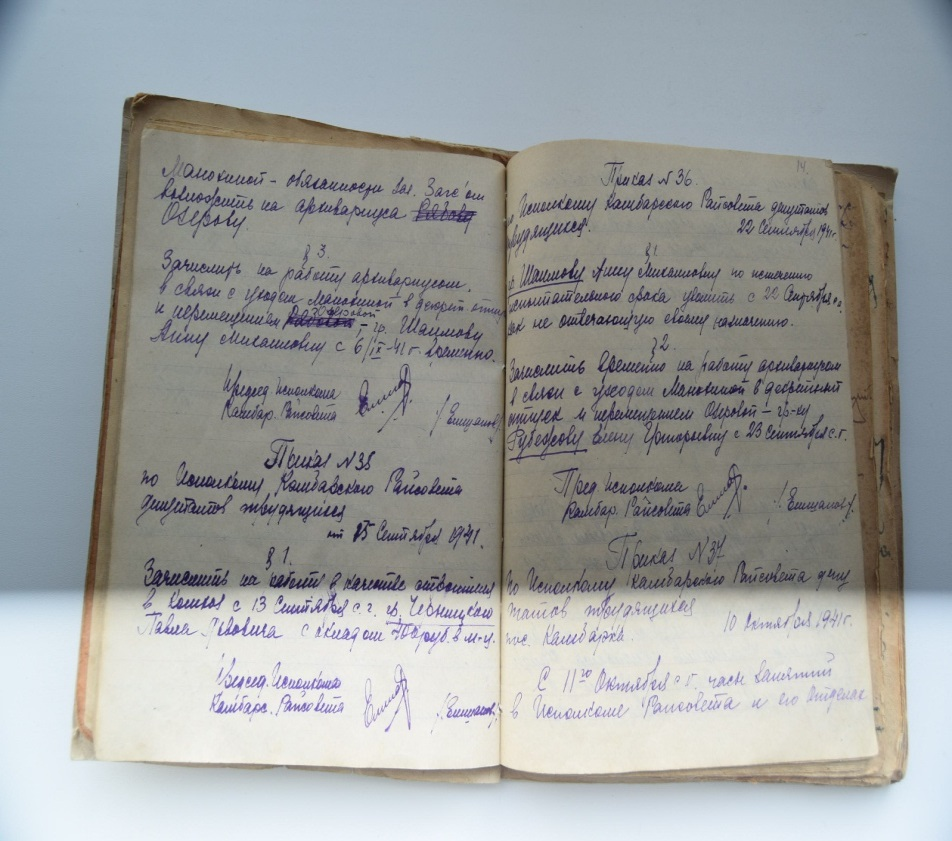 Манохиной – обязанности зав. Загс'ом
возложить на архивариуса
Озерову.
§ 3.
Зачислить на работу архивариусом,
в связи с уходом Манохиной в декрет. отпуск
Озеровой
и перемещением гр. Шаимову
Анну Михаиловну с 6/IX-41 г. временно.
Председ Исполкома
Камбар. Райсовета /Епишанов/.
Приказ N 35
по Исполкому Камбарского Райсовета
депутатов трудящихся
от 15 Сентября 1941.
§ 1.
Зачислить на работу в качестве
с 13 Сентября с. г. гр. Черницкого
Павла с окладом руб. в м-ц.
Председ. Исполкома
Камбарс. Райсовета /Епишанов/.
14.
Приказ N 36.
по Исполкому Камбарского Райсовета депутатов
трудящихся.
22 Сентября 1941 г.
§ 1
Шаимову Анну Михаиловну по истечению
испытательного срока уволить с 22 Сентября
как не отвечающую своему назначению.
§ 2.
Зачислить временно на работу архивариусом
в связи с уходом Манохиной в декретный
отпуск и перемещением Озеровой – гр-ку
Елену Григорьевну с 23 Сентября с. г.
Пред. Исполкома
Камбар. Райсовета /Епишанов/.
Приказ N 37
По Исполкому Камбарского Райсовета депу
татов трудящихся
пос. Камбарка. 10 Октября 1941 г.
С 11го Октября с. г. часы занятий
в Исполкоме Райсовета и его отделах